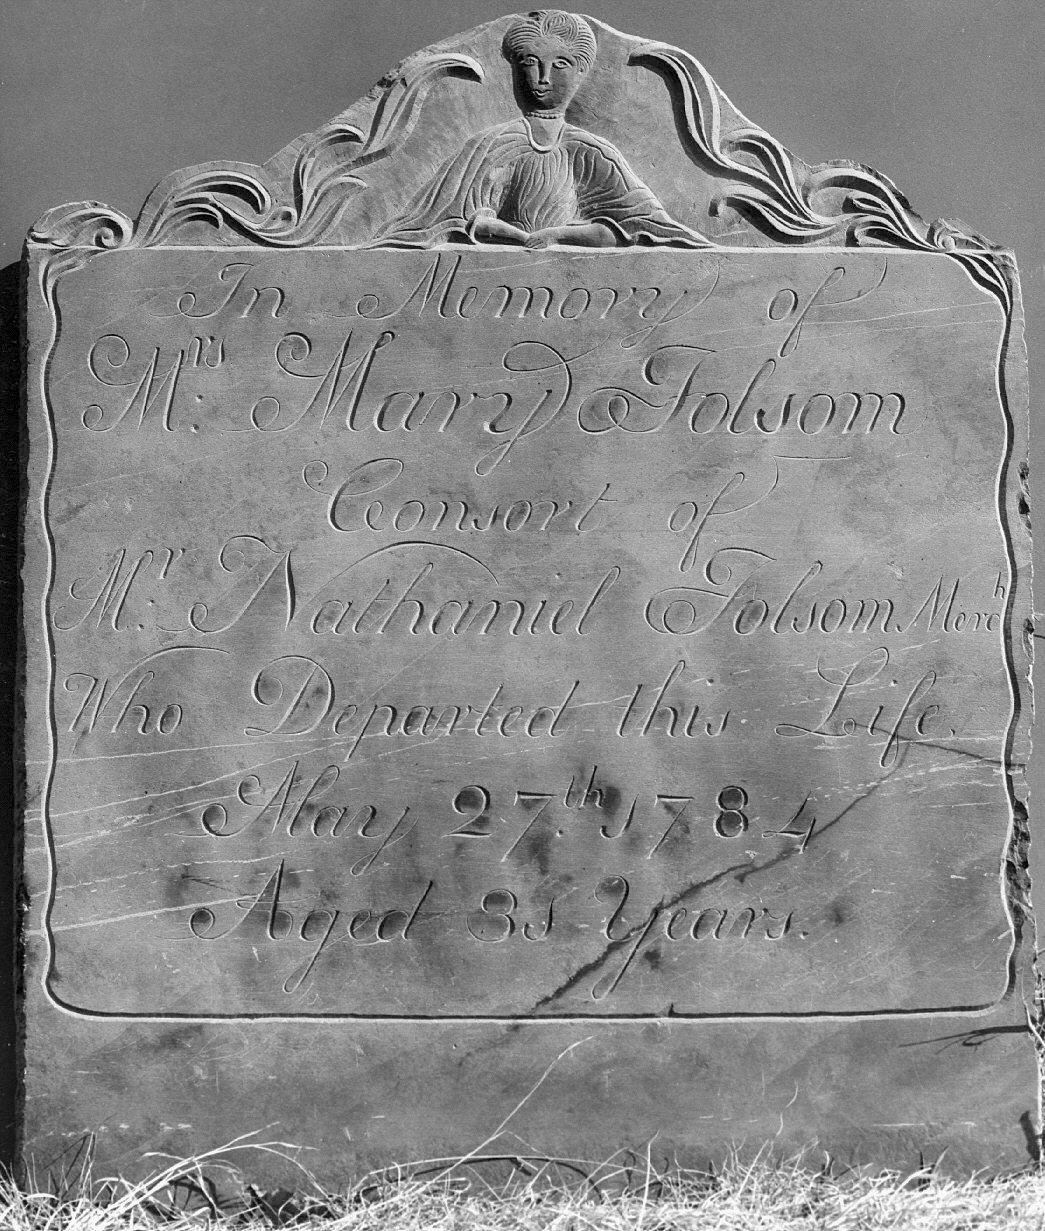 In Memory of
Mrs. Mary Folsom
Consort of
Mr. Nathaniel Folsom Merch
Who Departed this Life.
May 27th. 1784
Aged 31 Years.